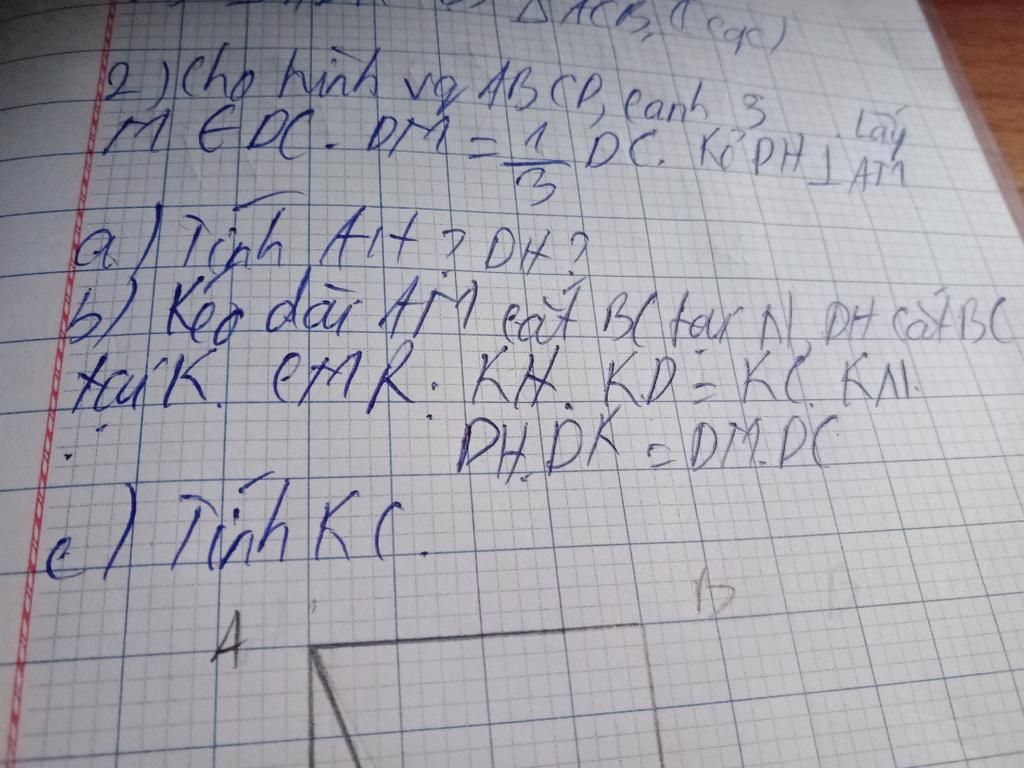 Δ ACB, (cqc)
2) Cho hình vg ABCD, cạnh 3
Lấy
M ∈ DC. DM = 1/3 DC. Kẻ DH ⊥ AM
a) Tính AH? DH?
b) Kéo dài AM cắt BC tại N, DH cắt BC
tại K. CMR: KH. KD = KC. KN.
DH.DK = DM.DC
c) Tính KC.
A B